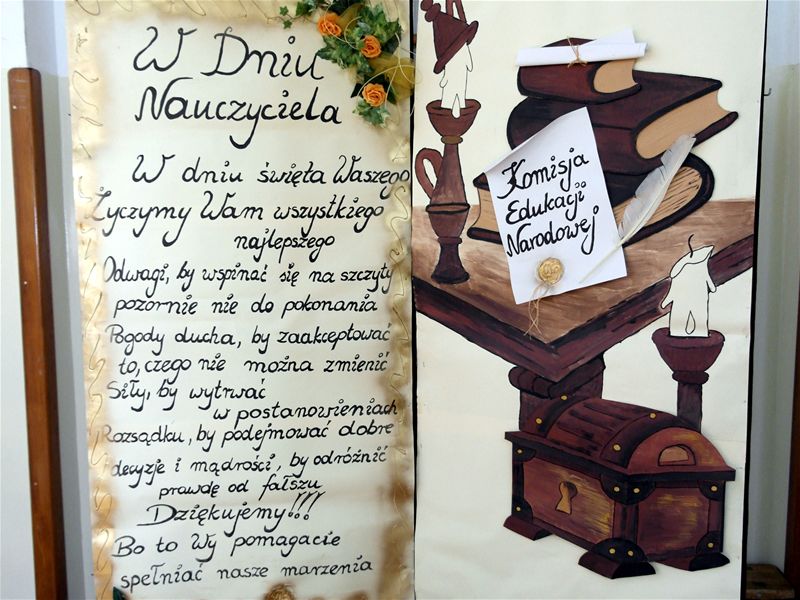 W Dniu
Nauczyciela
W dniu święta Waszego
Życzymy Wam wszystkiego
najlepszego
Odwagi, by wspinać się na szczyty
pozornie nie do pokonania
Pogody ducha, by zaakceptować
to, czego nie można zmienić
Siły, by wytrwać
w postanowieniach
Rozsądku, by podejmować dobre
decyzje i mądrości, by odróżnić
prawdę od fałszu
Dziękujemy!!!
Bo to Wy pomagacie
spełniać nasze marzenia
Komisja
Edukacji
Narodowej